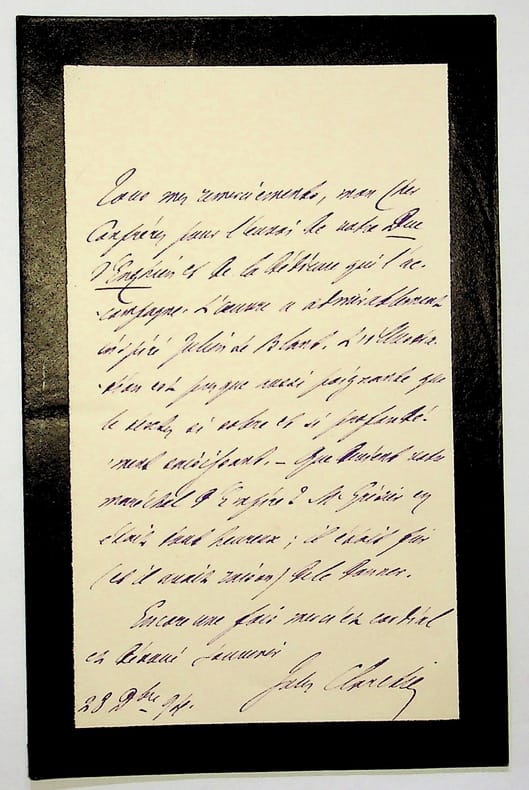 Tous mes remerciements, mon cher
Confrère, pour l'envoi de votre Duc
d'Enghien et de la dédicace qui l'ac-
-compagne. L'œuvre a admirablement
inspiré Julien Le Blant. L'illustra-
-tion est presque aussi poignante que
le texte, si sobre et si profondé-
-ment saisissant. — Que devient votre
maréchal d'Empire ? M.
était tout heureux ; il était fier
(et il avait raison) de le donner.
Encore une fois merci et cordial
et dévoué souvenir
Jules Claretie
23 Dbre 94.